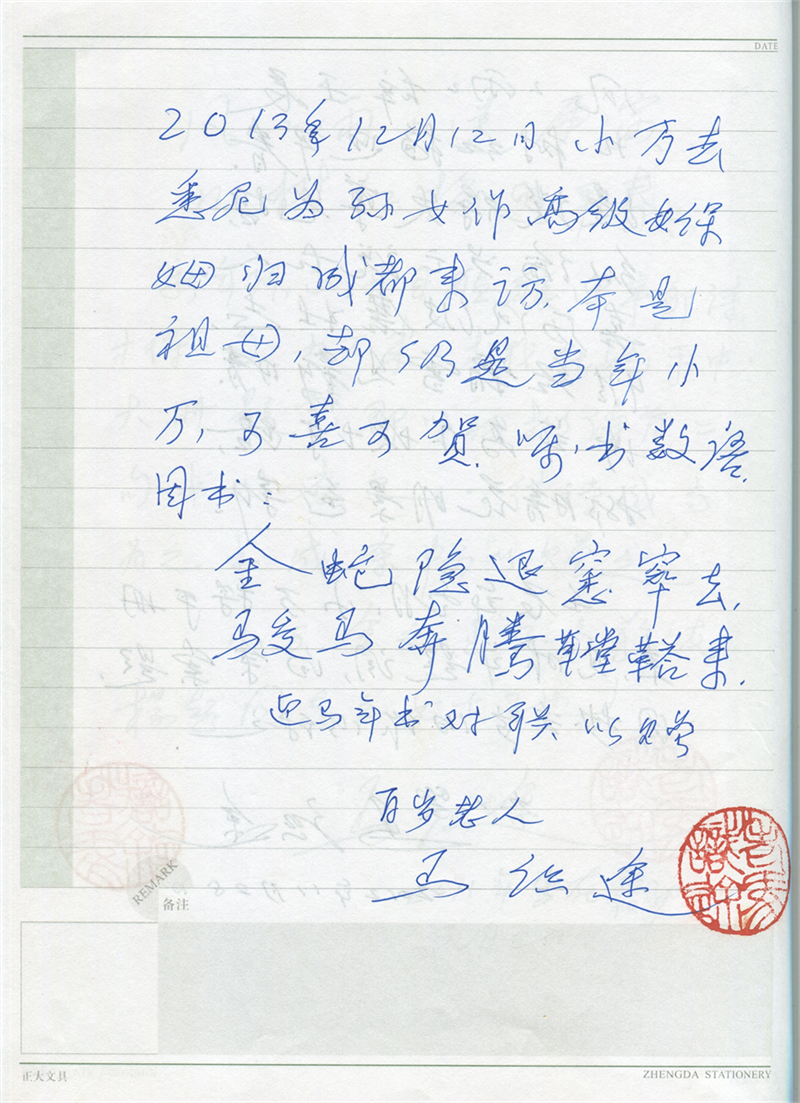 DATE
2013年12月12日小方去
悉尼为孙女作高级女保
姆归成都来访,本是
祖母,却仍是当年小
万,可喜可贺,嘱书数语,
因书:
金蛇隐退窸窣去,
骏马奔腾鞺鞳来,
迎马年书对联以为赠
百岁老人
马识途
REMARK
备注
正大文具
ZHENGDA STATIONERY